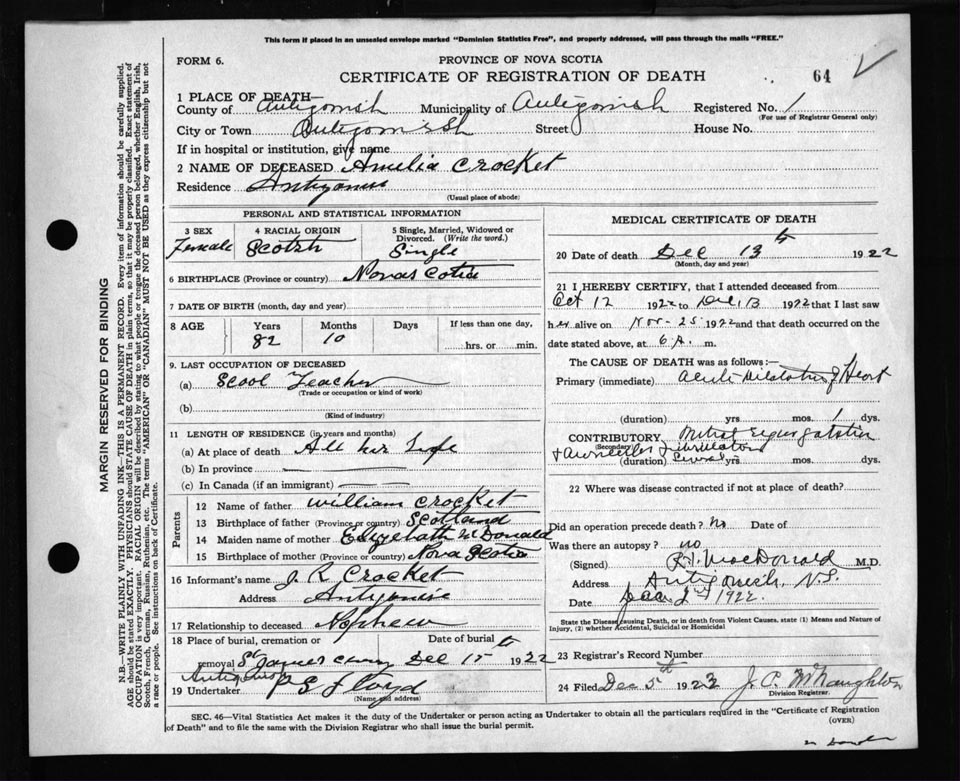 This form if placed in an unsealed envelope marked "Dominion Statistics Free", and properly addressed, will pass through the mails "FREE."
FORM 6.
PROVINCE OF NOVA SCOTIA
CERTIFICATE OF REGISTRATION OF DEATH
64
1 PLACE OF DEATH—
County of Antigonish Municipality of Antigonish Registered No. 1
(For use of Registrar General only)
City or Town Antigonish Street House No.
If in hospital or institution, give name
2 NAME OF DECEASED Amelia Crocket
Residence
(Usual place of abode)
PERSONAL AND STATISTICAL INFORMATION
3 SEX 4 RACIAL ORIGIN 5 Single, Married, Widowed or Divorced. (Write the word.)
Female Scotch Single
6 BIRTHPLACE (Province or country) Nova Scotia
7 DATE OF BIRTH (month, day and year)
8 AGE Years Months Days If less than one day,
82 10 hrs. or min.
9. LAST OCCUPATION OF DECEASED
(a) Scool Teacher
(Trade or occupation or kind of work)
(b)
(Kind of industry)
11 LENGTH OF RESIDENCE (in years and months)
(a) At place of death All her Life
(b) In province
(c) In Canada (if an immigrant)
Parents
12 Name of father William Crocket
13 Birthplace of father (Province or country) Scotland
14 Maiden name of mother Elizebath McDonald
15 Birthplace of mother (Province or country) Nova Scotia
16 Informant's name J. R. Crocket
Address
17 Relationship to deceased Nephew
18 Place of burial, cremation or Date of burial
removal St James Dec 15th 1922
19 Undertaker P S Floyd
(Name and address)
MEDICAL CERTIFICATE OF DEATH
20 Date of death Dec 13th 1922
(Month, day and year)
21 I HEREBY CERTIFY, that I attended deceased from
Oct 12 1922 to Dec 13 1922 that I last saw
her alive on Nov - 25 1922 and that death occurred on
date stated above, at 6 A. m.
The CAUSE OF DEATH was as follows:—
Primary (immediate) Acute Dilatation of Heart
(duration) yrs mos. 1 dys.
CONTRIBUTORY Mitral regurgatation
(Secondary)
& Auricular Fibrillation
(duration) Several yrs mos. dys.
22 Where was disease contracted if not at place of death?
Did an operation precede death? No Date of
Was there an autopsy? no
(Signed) MacDonald M.D.
Address Antigonish, N.S.
Date 1922.
State the Disease causing Death, or in death from Violent Causes, state (1) Means and Nature of Injury, (2) whether Accidental, Suicidal or Homicidal
23 Registrar's Record Number
24 Filed Dec 5th 192 J. P. McNaughton
Division Registrar.
SEC. 46—Vital Statistics Act makes it the duty of the Undertaker or person acting as Undertaker to obtain all the particulars required in the "Certificate of Registration of Death" and to file the same with the Division Registrar who shall issue the burial permit.
(OVER)
MARGIN RESERVED FOR BINDING
N.B.—WRITE PLAINLY WITH UNFADING INK—THIS IS A PERMANENT RECORD. Every item of information should be carefully supplied.
AGE should be stated EXACTLY. PHYSICIANS should STATE CAUSE OF DEATH in plain terms, so that it may be properly classified. Exact statement of
OCCUPATION is very important. RACIAL ORIGIN will be described by stating to what people or tongue the deceased person belonged, whether English, Irish,
Scotch, French, German, Russian, Ruthenian, etc. The terms "AMERICAN" OR "CANADIAN" MUST NOT BE USED as they express citizenship but not
a race or people. See instructions on back of Certificate.